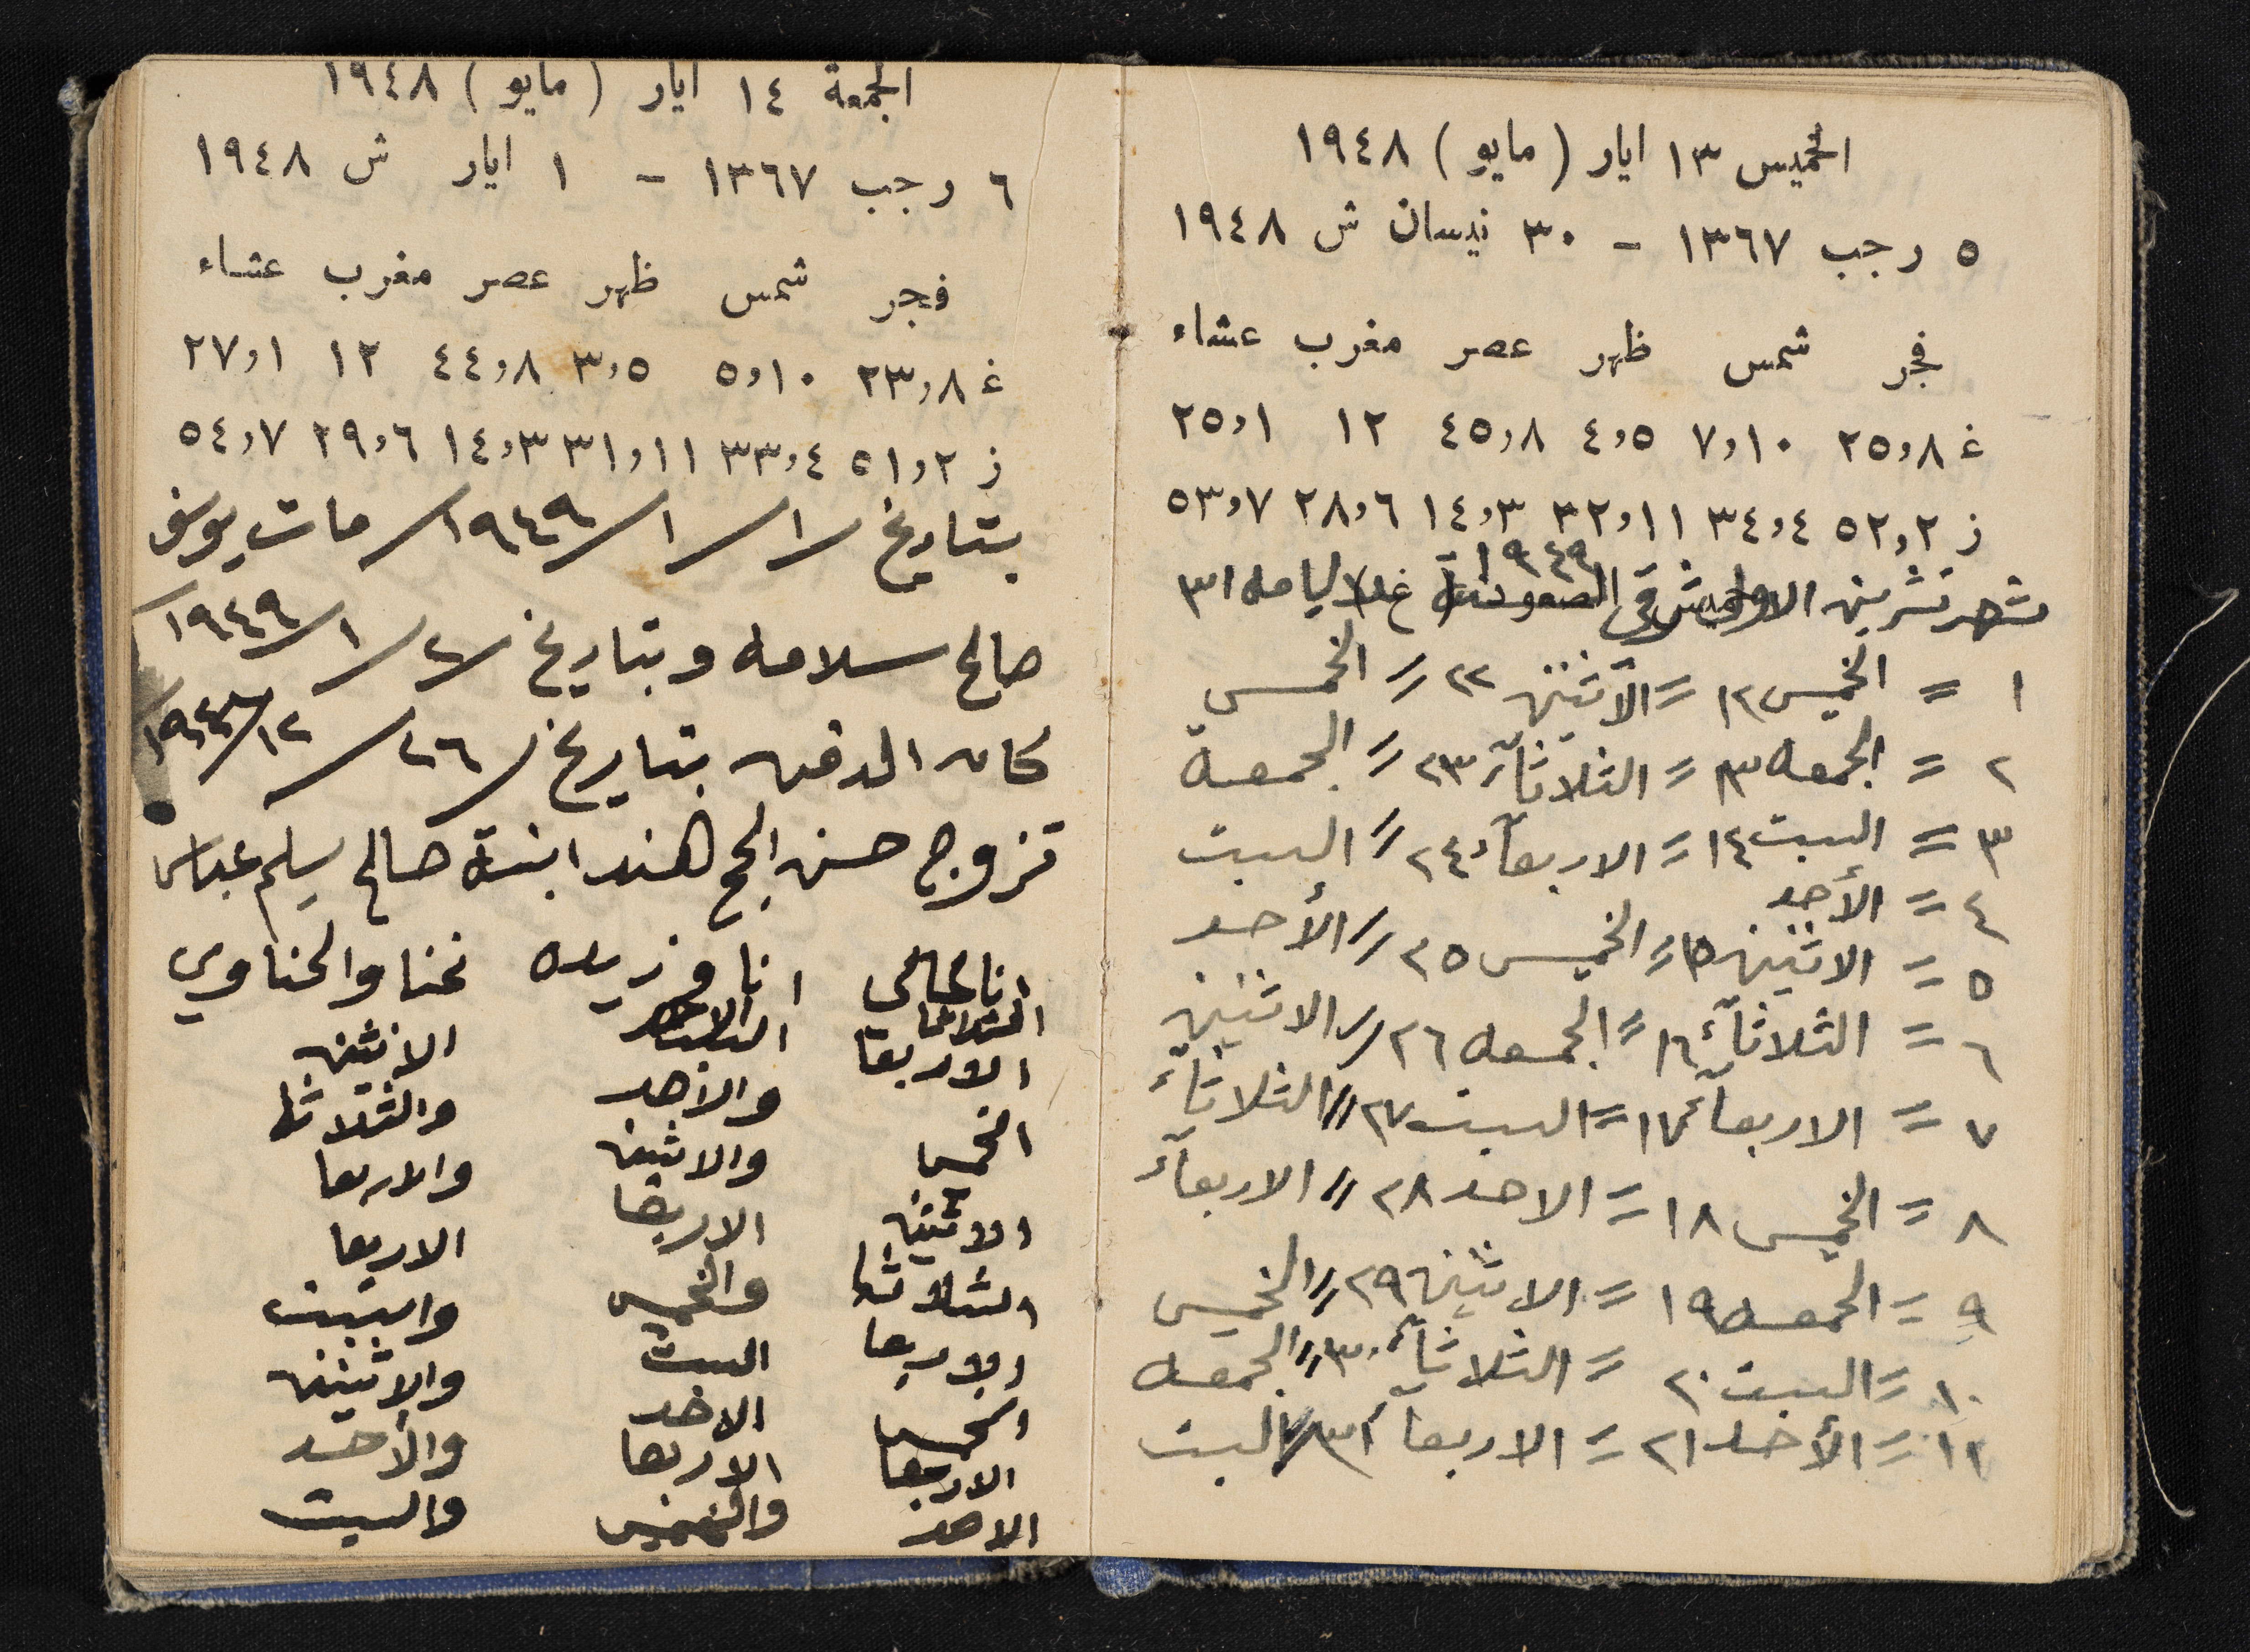 الخميس ١٣ ايار (مايو) ١٩٤٨
٥ رجب ١٣٦٧ - ٣٠ نيسان ش ١٩٤٨
فجر شمس ظهر عصر مغرب عشاء
غ ٢٥,٨ ٧,١٠ ٤,٥ ٤٥,٨ ١٢ ٢٥,١
ز ٥٢,٢ ٣٤,٤ ٣٢,١١ ١٤,٣ ٢٨,٦ ٥٣,٧
١٩٤٩
شهر تشرين الاول شرقي ايامه ٣١
١ = الخميس ١٢ = الآثنين ٢٢ // الخمس
٢ = الجمعه ١٣ = الثلاثآء ٢٣ // الجمعة
٣ = السبت ١٤ = الاربعآء ٢٤ // السبت
٤ = الأحد
٥ = الاثنين ١٥ // الخميس ٢٥ // الأحد
٦ = الثلاثآء ١٦ // الجمعه ٢٦ // الاثنين
٧ = الاربعآء ١٧ = السبت ٢٧ // الثلاثآء
٨ = الخميس ١٨ = الاحد ٢٨ // الاربعآء
٩ = الجمعه ١٩ = الاثنين ٢٩ // الخميس
١٠ = السبت ٢٠ = الثلاثآء ٣٠ // الجمعه
١١ = الأحد ٢١ = الاربعآ ٣١ // السبت
الجمعة ١٤ ايار (مايو) ١٩٤٨
٦ رجب ١٣٦٧ - ١ ايار ش ١٩٤٨
فجر شمس ظهر عصر مغرب عشاء
غ ٢٣,٨ ٥,١٠ ٣,٥ ٤٤,٨ ١٢ ٢٧,١
ز ٥١,٢ ٣٣,٤ ٣١,١١ ١٤,٣ ٢٩,٦ ٥٤,٧
بتاريخ ١/١/١٩٤٩/ مات يوسف
صالح سلامه وبتاريخ ٢/١/١٩٤٩
كان الدفن بتاريخ ٢٦/١٢/
تزوج حسن الحج هند ابنة صالح سليم عباس
انا لحالي انا وزيده نحنا والحناوي
الاربعا والأحد الاثنين
الخمس والاثنين والثلاثا
الاثنين الاربعا والاربعا
الثلاثا والخميس الاربعا
الاربعا السبت والسبت
الخمس الاحد والاثنين
الاربعا الاربعا والأحد
الاحد والخميس والسبت